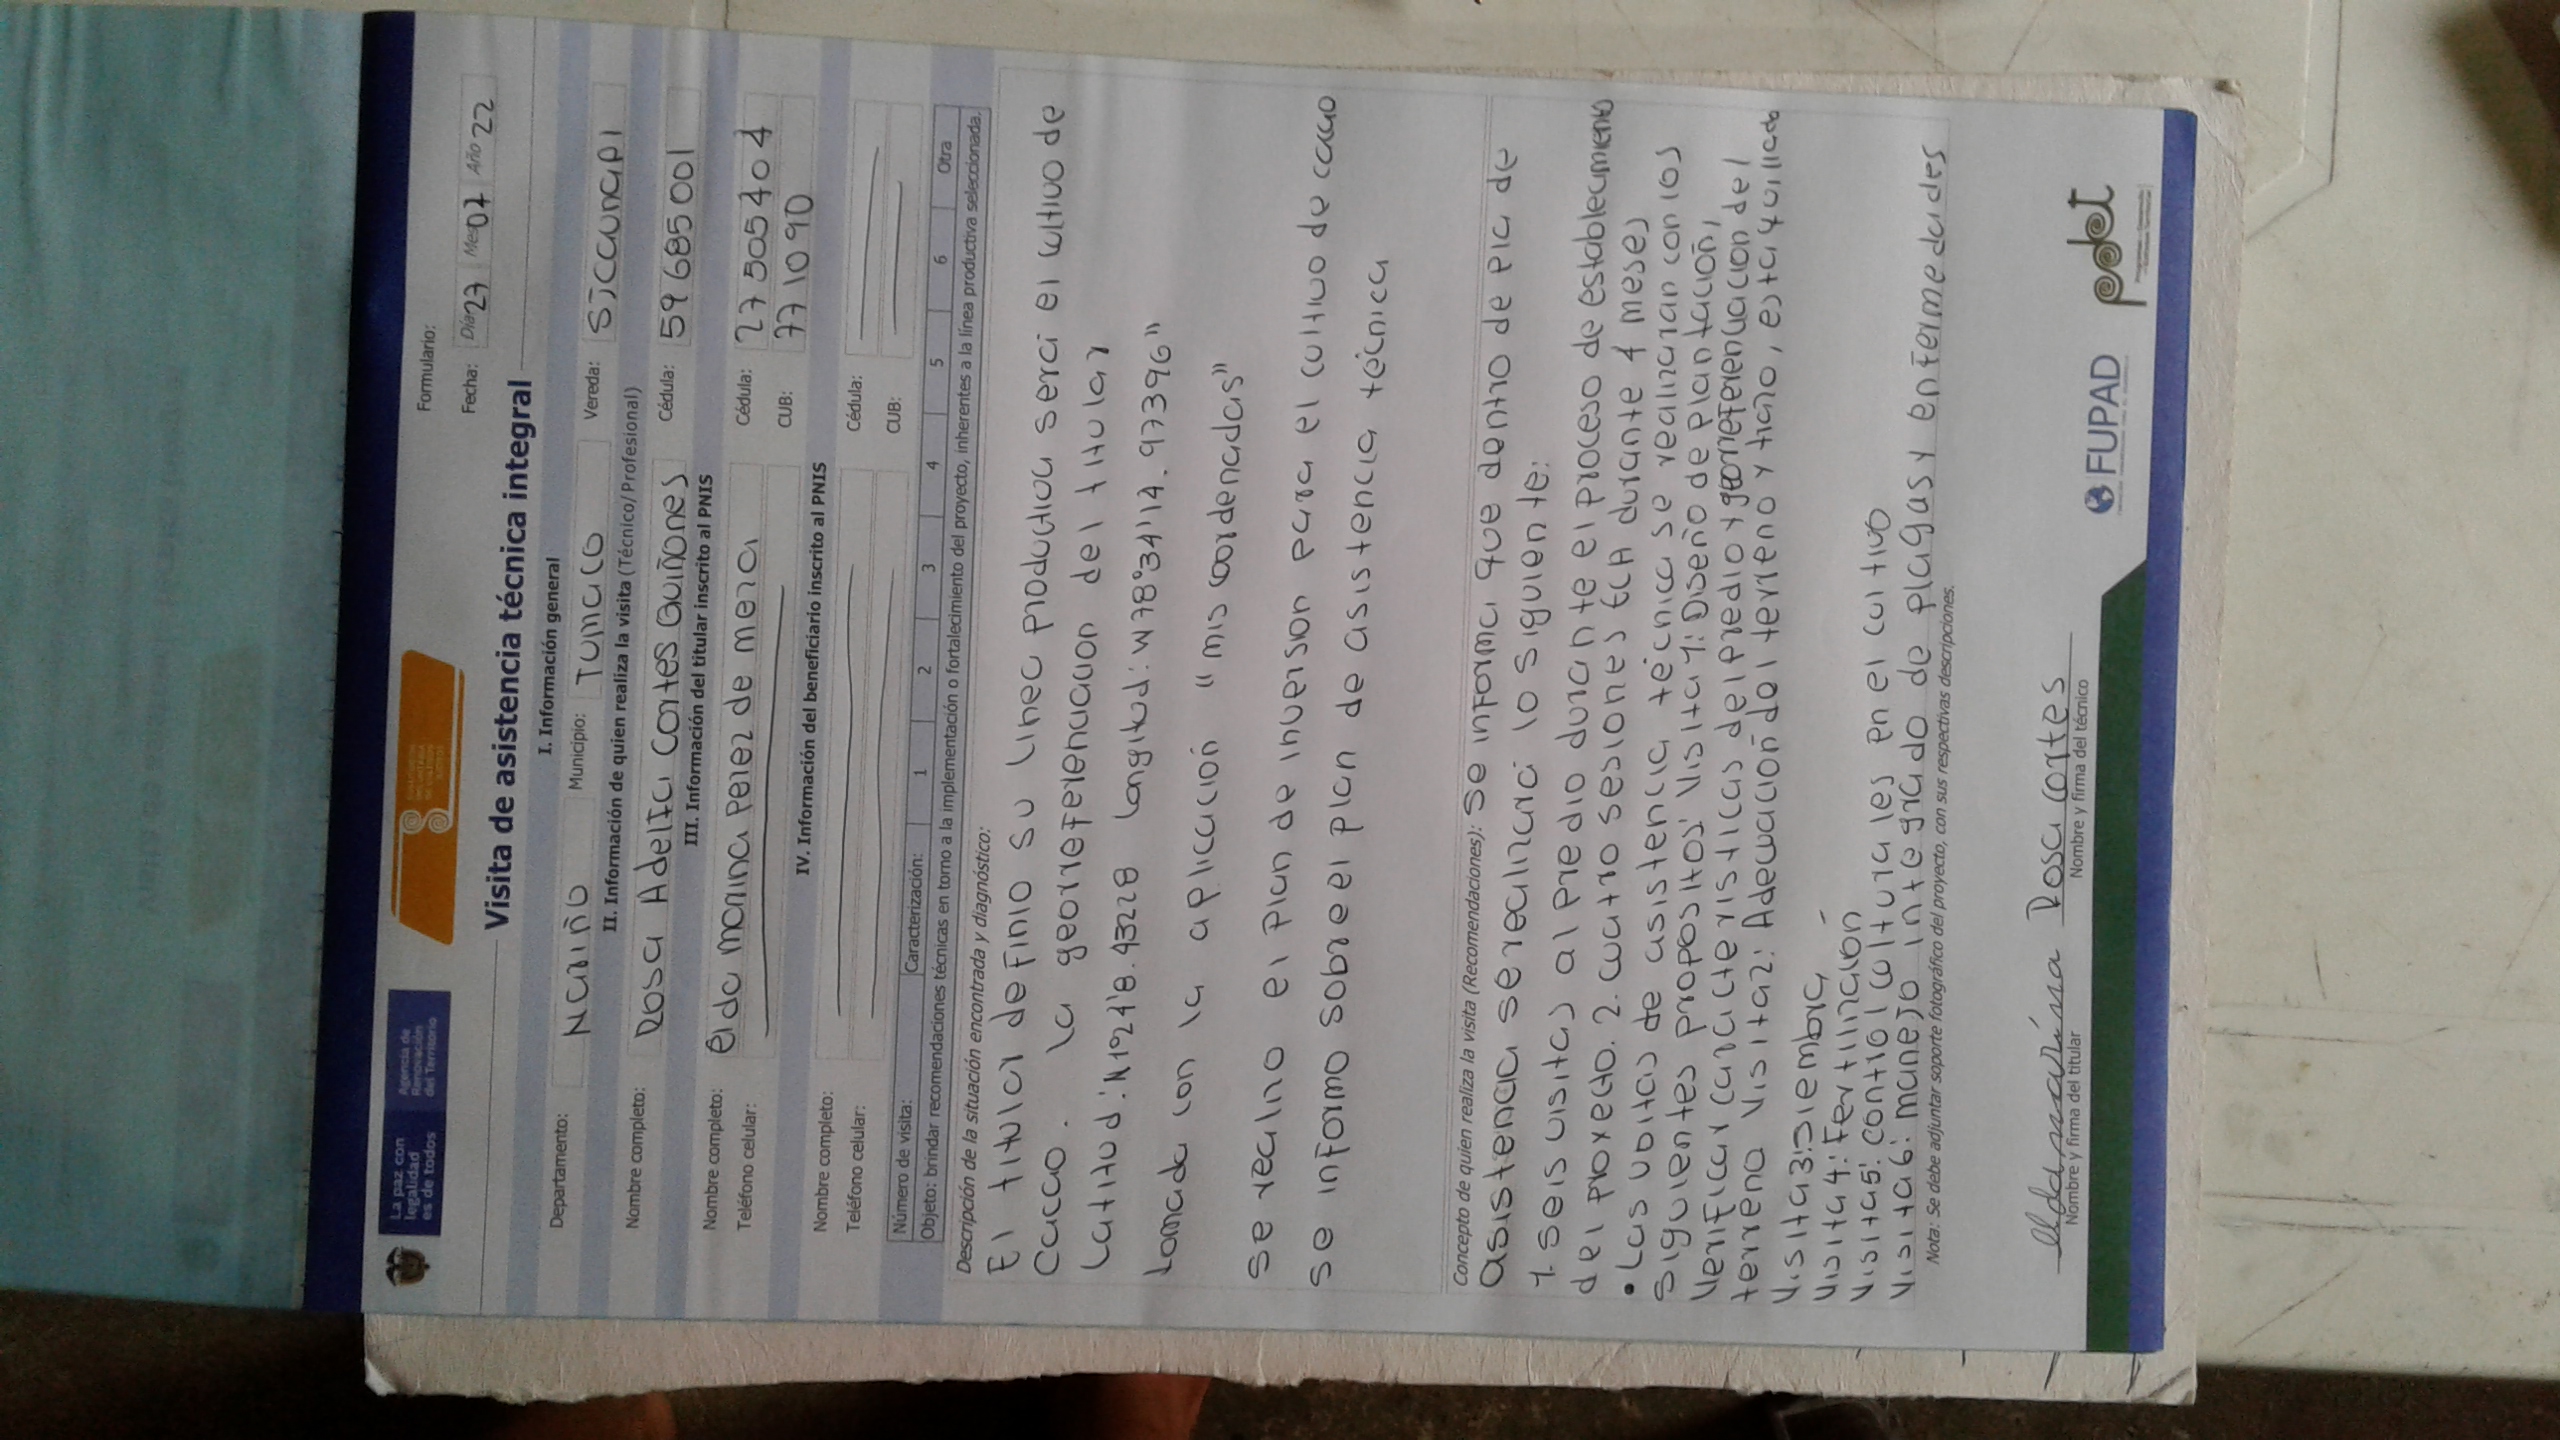 La paz con
legalidad
es de todos
Agencia de
Renovación
del Territorio
Formulario:
Fecha: Día 27 Mes 07 Año 22
Visita de asistencia técnica integral
I. Información general
Departamento: Nariño Municipio: Tumaco Vereda: Sjcaunapi
II. Información de quien realiza la visita (Técnico/ Profesional)
Nombre completo: Rosa Adelfa Cortes Quiñones Cédula: 59685001
III. Información del titular inscrito al PNIS
Nombre completo: elda marina Perez de mera Cédula: 27505404
Teléfono celular: CUB: 771090
IV. Información del beneficiario inscrito al PNIS
Nombre completo: Cédula:
Teléfono celular: CUB:
Número de visita: Caracterización: 1 2 3 4 5 6 Otra
Objeto: brindar recomendaciones técnicas en torno a la implementación o fortalecimiento del proyecto, inherentes a la línea productiva seleccionada.
Descripción de la situación encontrada y diagnóstico:
El titular definio su linea productiva sera el cultivo de
Cacao. la georreferenciacion del titular
Latitud: N1°24'8.43228 Longitud: W78°34'14.97396"
tomada con la aplicación "mis cordenadas"
se realizo el plan de inversion para el cultivo de cacao
se informo sobre el plan de asistencia técnica
Concepto de quien realiza la visita (Recomendaciones): se informa que dentro de pla de
asistencia se realizara lo siguiente:
1. seis visitas al predio durante el proceso de establecimiento
del proyecto. 2. cuatro sesiones ECA durante 4 meses
• Las vbitas de asistencia técnica se realizaran con los
siguientes propositos: Visita 1: Diseño de plantación,
Verificar caracteristicas del predio y georreferenciacion del
terreno Visita 2: Adecuación del terreno y trazo, estaquillado
Visita 3: Siembra
Visita 4: Fertilización
Visita 5: control culturales en el cultivo
Visita 6: manejo integrado de plagas y enfermedades
Nota: Se debe adjuntar soporte fotográfico del proyecto, con sus respectivas descripciones.
elda marina Rosa cortes
Nombre y firma del titular Nombre y firma del técnico
FUPAD pdet